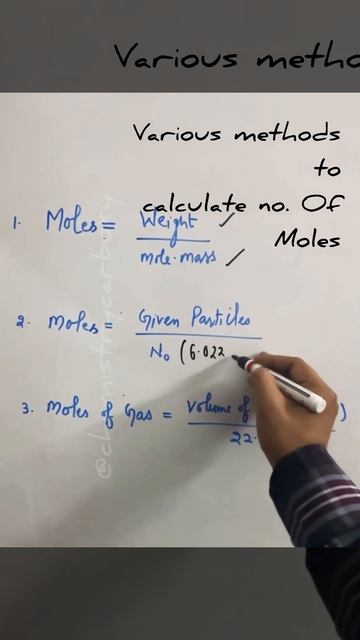 Various metho
Various methods
to
calculate no. Of
Moles
1. Moles = Weight
mole.mass
2. moles = Given Particles
No (6.022
3. Moles of Gas = Volume of
22.
@chemistrycarboxy